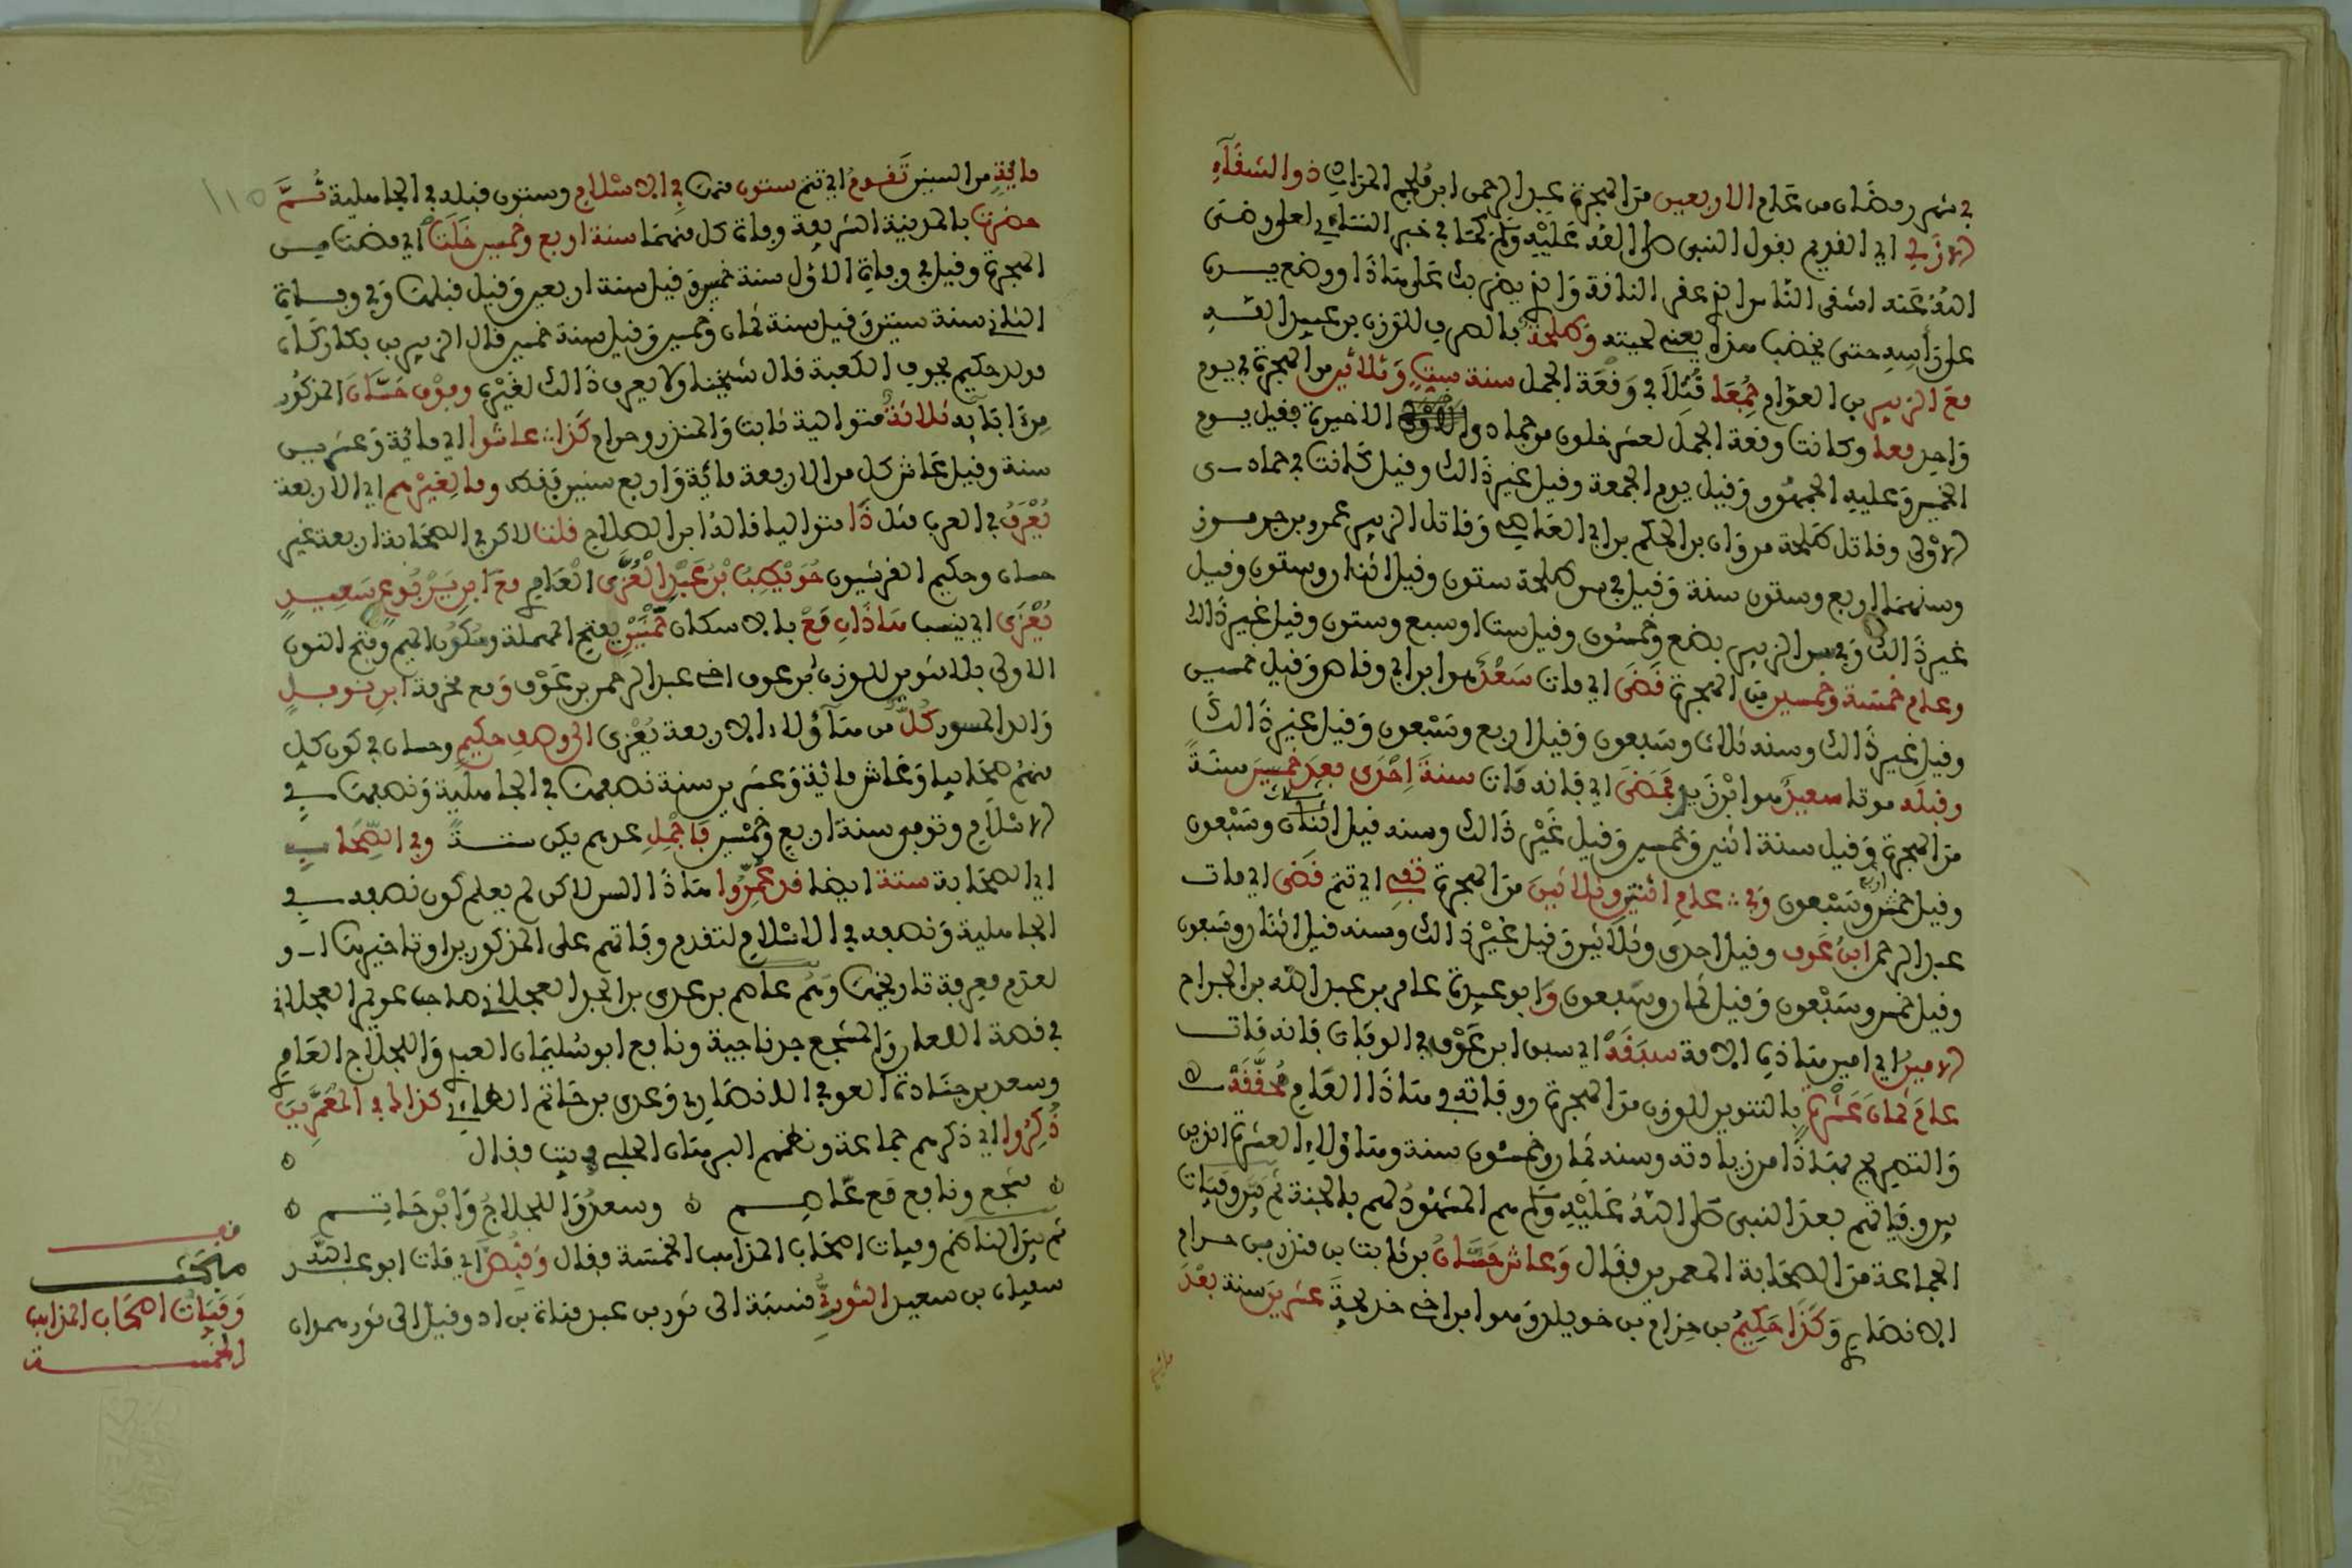 في شهر رمضان من عام الاربعين من الهجرة عبد الرحمن ابن ملجم المرادي ذو الشقاء
الازلي اي القديم بقول النبي صلى الله عليه وسلم كما في خبر النسائي لعلي رضي
الله عنه اشقى الناس الذي عقر الناقة والذي يضربك على هاذا ووضع يده
على راسه حتى يخضب هذه يعني لحيته وطلحة بالصرف للوزن بن عبيد الله
مع الزبير بن العوام جمعا قتلا في وقعة الجمل سنة ست وثلاثين من الهجرة في يوم
واحد معا وكانت وقعة الجمل لعشر خلون من جمادى الاخيرة فقيل يوم
الخميس وعليه الجمهور وقيل يوم الجمعة وقيل غير ذالك وقيل كانت في جمادى
الاولى وقاتل طلحة مروان بن الحكم بن ابي العاصي وقاتل الزبير عمرو بن جرموز
وسنهما اربع وستون سنة وقيل في سن طلحة ستون وقيل اثنان وستون وقيل
غير ذالك وفي سن الزبير بضع وخمسون وقيل ست او سبع وستون وقيل غير ذالك
وعام خمسة وخمسين من الهجرة قضى اي مات سعد هو ابن ابي وقاص وقيل خمسين
وقيل غير ذالك وسنه ثلاث وسبعون وقيل اربع وسبعون وقيل غير ذالك
وقبله موتا سعيد هو ابن زيد فمضى اي فانه مات سنة احدى بعد خمسين سنة
من الهجرة وقيل سنة اثنين وخمسين وقيل غير ذالك وسنه قيل اثنان وسبعون
وقيل خمس وسبعون وفي عام اثنين وثلاثين من الهجرة تفي اي تتم قضى اي مات
عبد الرحمن ابن عوف وقيل احدى وثلاثين وقيل غير ذالك وسنه قيل اثنان وسبعون
وقيل خمس وسبعون وقيل ثمان وسبعون وابو عبيدة عامر بن عبد الله بن الجراح
الامين اي امين هاذه الامة سبقه اي سبق ابن عوف في الوفاة فانه مات
عام ثمان عشرة بالتنوين للوزن من الهجرة ووفاته في هاذا العام محققة
والتصريح بهاذا من زيادته وسنه ثمان وخمسون سنة وهاؤلاء العشرة الذين
بين وفياتهم بعد النبي صلى الله عليه وسلم هم المشهود لهم بالجنة ثم بين وفيات
الجماعة من الصحابة المعمرين فقال وعاش حسان بن ثابت بن منذر بن حرام
الانصاري وكذا حكيم بن حزام بن خويلد وهو ابن اخي خديجة عشرين سنة بعد
مائة
مائة من السنين تقوم اي تتم ستون منها في الاسلام وستون قبله في الجاهلية ثم
حضرت بالمدينة الشريفة وفاة كل منهما سنة اربع وخمسين خلت اي مضت من
الهجرة وقيل في وفاة الاول سنة خمسين وقيل سنة اربعين وقيل قبلها وفي وفاة
الثاني سنة ستين وقيل سنة ثمان وخمسين وقيل سنة خمسين قال الزبير بن بكار وكان
مولد حكيم بجوف الكعبة قال شيخنا ولا يعرف ذالك لغيره وفوق حسان المذكور
من ابائه ثلاثة متوالية ثابت والمنذر وحرام كذا عاشوا اي مائة وعشرين
سنة وقيل عاش كل من الاربعة مائة واربع سنين فقط وما لغيرهم اي الاربعة
يعرف في العرب مثل ذا متواليا قاله ابن الصلاح قلت لاكن في الصحابة اربعة غير
حسان وحكيم القرشيون حويطب بن عبد العزى العامري مع ابن يربوع سعيد
يعزى اي ينسب هاذان مع بالاسكان حمنن بفتح المهملة وسكون الميم وفتح النون
الاولى بلا تنوين للوزن بن عوف اخي عبد الرحمن بن عوف ومع مخرمة ابن نوفل
والد المسور كل من هاؤلاء الاربعة يعزى الى وصف حكيم وحسان في كون كل
منهم صحابيا وعاش مائة وعشرين سنة نصفها في الجاهلية ونصفها في
الاسلام وتوفي سنة اربع وخمسين فاجمل عدهم يكن ستة وفي الصحاب
اي الصحابة ستة ايضا قد عمروا هاذا السن لاكن لم يعلم كون نصفه في
الجاهلية ونصفه في الاسلام لتقدم وفاتهم على المذكورين او تاخيرها او
لعدم معرفة تاريخها وهم عاصم بن عدي بن الجد العجلاني صاحب عويمر العجلاني
في قصة اللعان والمنتجع جد ناجية ونافع ابو سليمان العبدي واللجلاج العامري
وسعد بن جنادة العوفي الانصاري وعدي بن حاتم الطائي كذا في المعمرين
ذكروا اي ذكرهم جماعة ونظمهم البرهان الحلبي في بيت فقال ه
ه منتجع ونافع مع عاصم ه وسعد واللجلاج وابن حاتم ه
ثم بين الناظم وفيات اصحاب المذاهب الخمسة فقال وقبض اي مات ابو عبد الله
سفيان بن سعيد الثوري نسبة الى ثور بن عبد مناة بن اد وقيل الى ثور همدان
قف
مبحث
وفيات اصحاب المذاهب
الخمسة